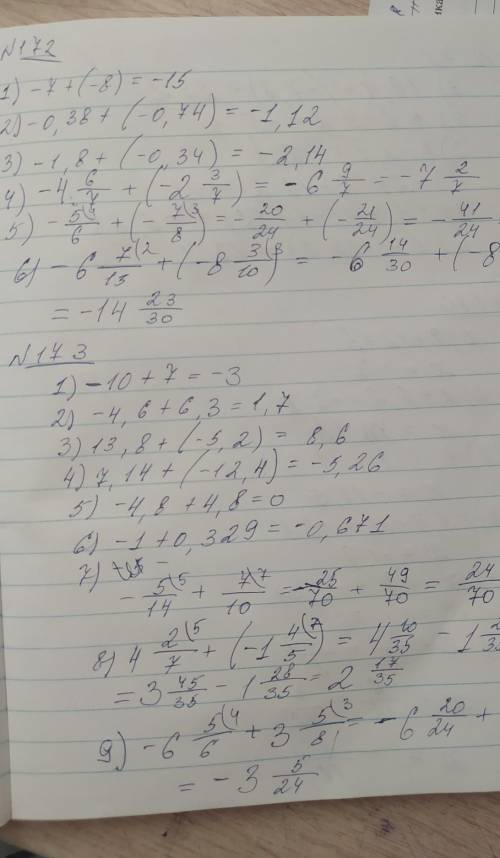 N172
1) -7+(-8) = -15
2) -0,38 + (-0,74) = -1,12
3) -1,8 + (-0,34) = -2,14
4) -4 6/7 + (-2 3/7) = -6 9/7 = -7 2/7
5) -5(4/6 + (-7(3/8) = -20/24 + (-21/24) = -41/24
6) -6 7(2/15 + (-8 3(3/10) = -6 14/30 + (-8
= -14 23/30
N173
1) -10+7 = -3
2) -4,6+6,3 = 1,7
3) 13,8 + (-5,2) = 8,6
4) 7,14 + (-12,4) = -5,26
5) -4,8 + 4,8 = 0
6) -1+0,329 = -0,671
7) -5\5/14 + 7\7/10 = -25/70 + 49/70 = 24/70
8) 4 2(5/7 + (-1 4(7/5) = 4 10/35 - 1
= 3 45/35 - 1 28/35 = 2 17/35
9) -6 5(4/6 + 3 5(3/8 = -6 20/24 +
= -3 5/24